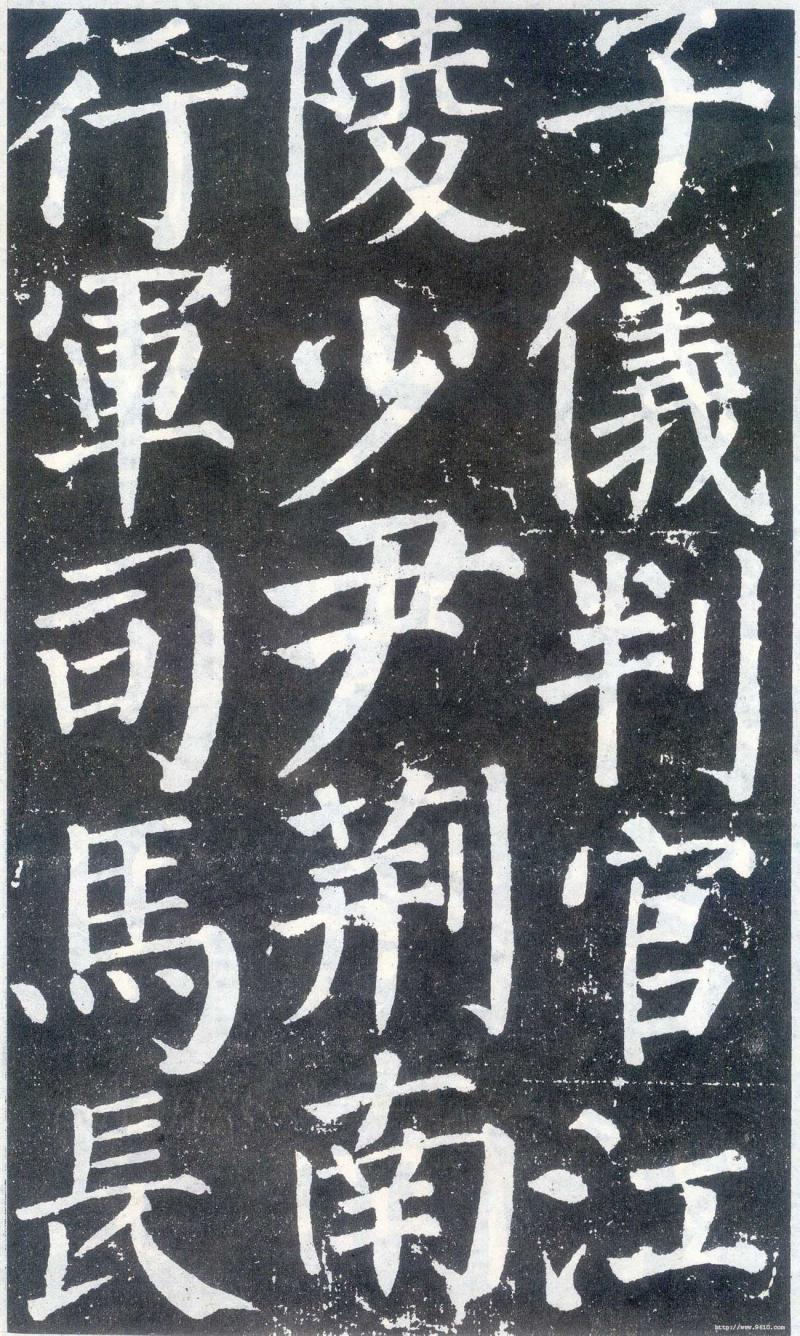 子儀判官江
陵少尹荆南
行軍司馬長
http://www.9610.com